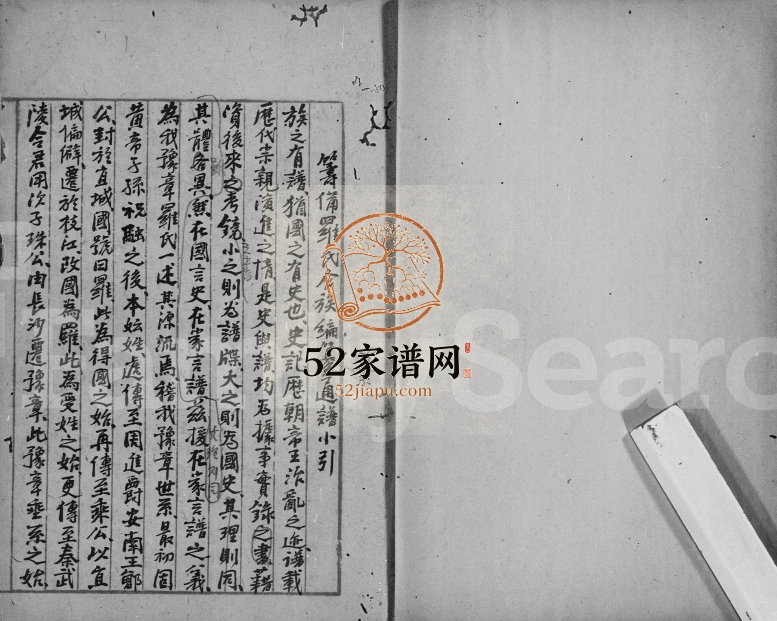 籌備羅氏合族編修通譜小引
族之有譜猶國之有史也史記歷朝帝王治亂之迹譜載
歷代宗親後進之情是史與譜均為據事實錄之書藉
資後來之考鏡小之則為譜牒大之則為國史其理則同
其體各異然在國言史在家言譜茲援在家言譜之義
為我豫章羅氏一述其源流焉稽我豫章世系最初固
黃帝子孫祝融之後本妘姓處傳至周進爵安南王鄭
公封於宜城國號曰羅此為得國之始再傳至乘公以宜
城偏僻遷於枝江改國為羅此為受姓之始更傳至秦武
陵令君用次子珠公由長沙遷豫章此豫章垂系之始
52家谱网
52jiapu.com
Search